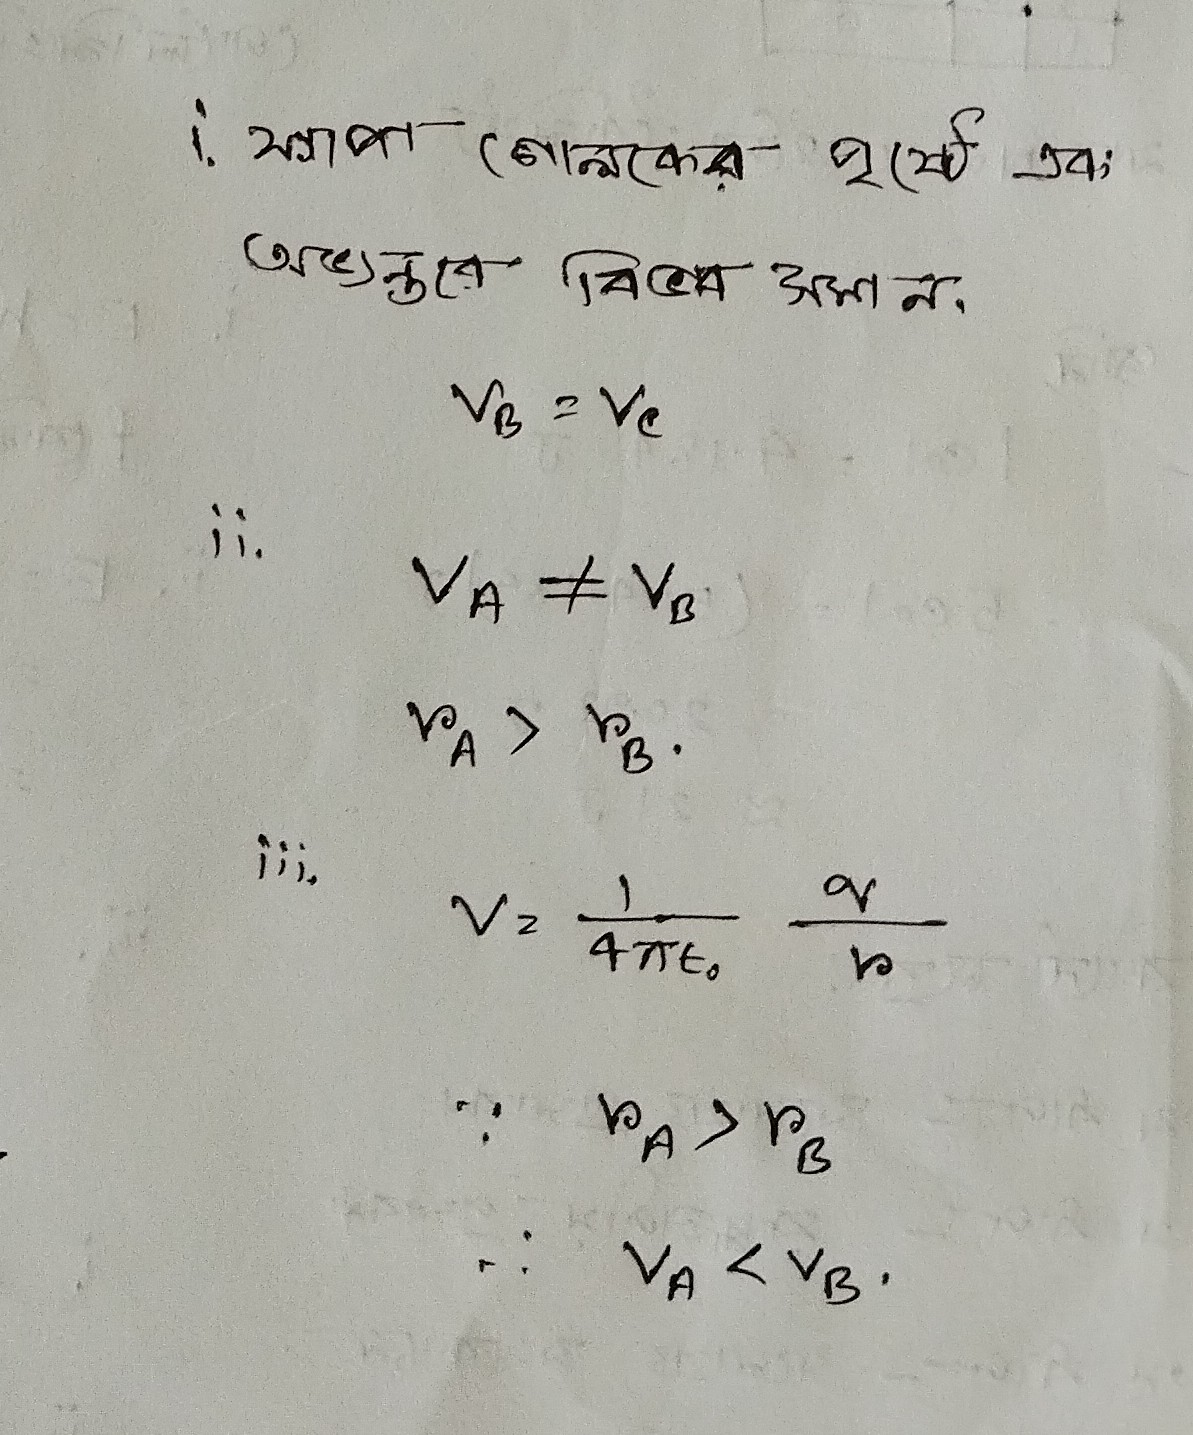 i. ফাপা গোলকের পৃষ্ঠে এবং
অভ্যন্তরে বিভব সমান.
V_B = V_C
ii.
V_A ≠ V_B
r_A > r_B.
iii.
V = 1/4πε₀ q/r
∵ r_A > r_B
∴ V_A < V_B.